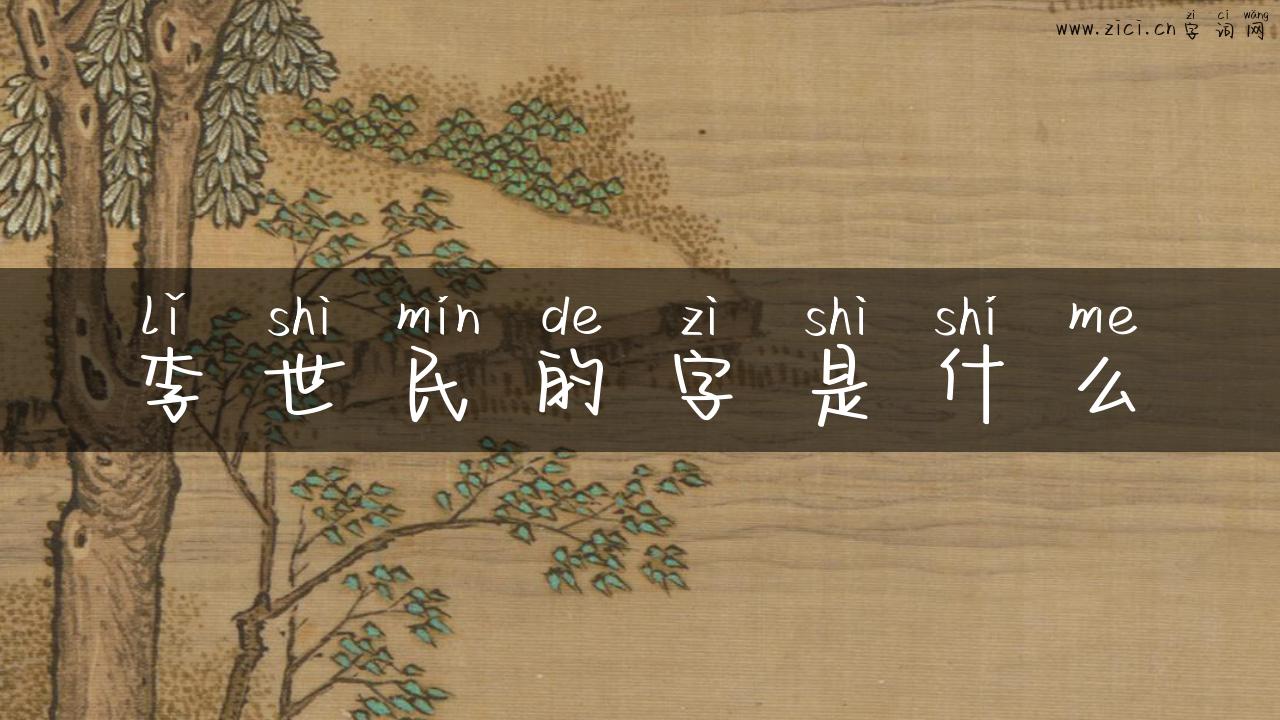 zì cí wǎng
www.zici.cn 字词网
lǐ shì mín de zì shì shí me
李世民的字是什么